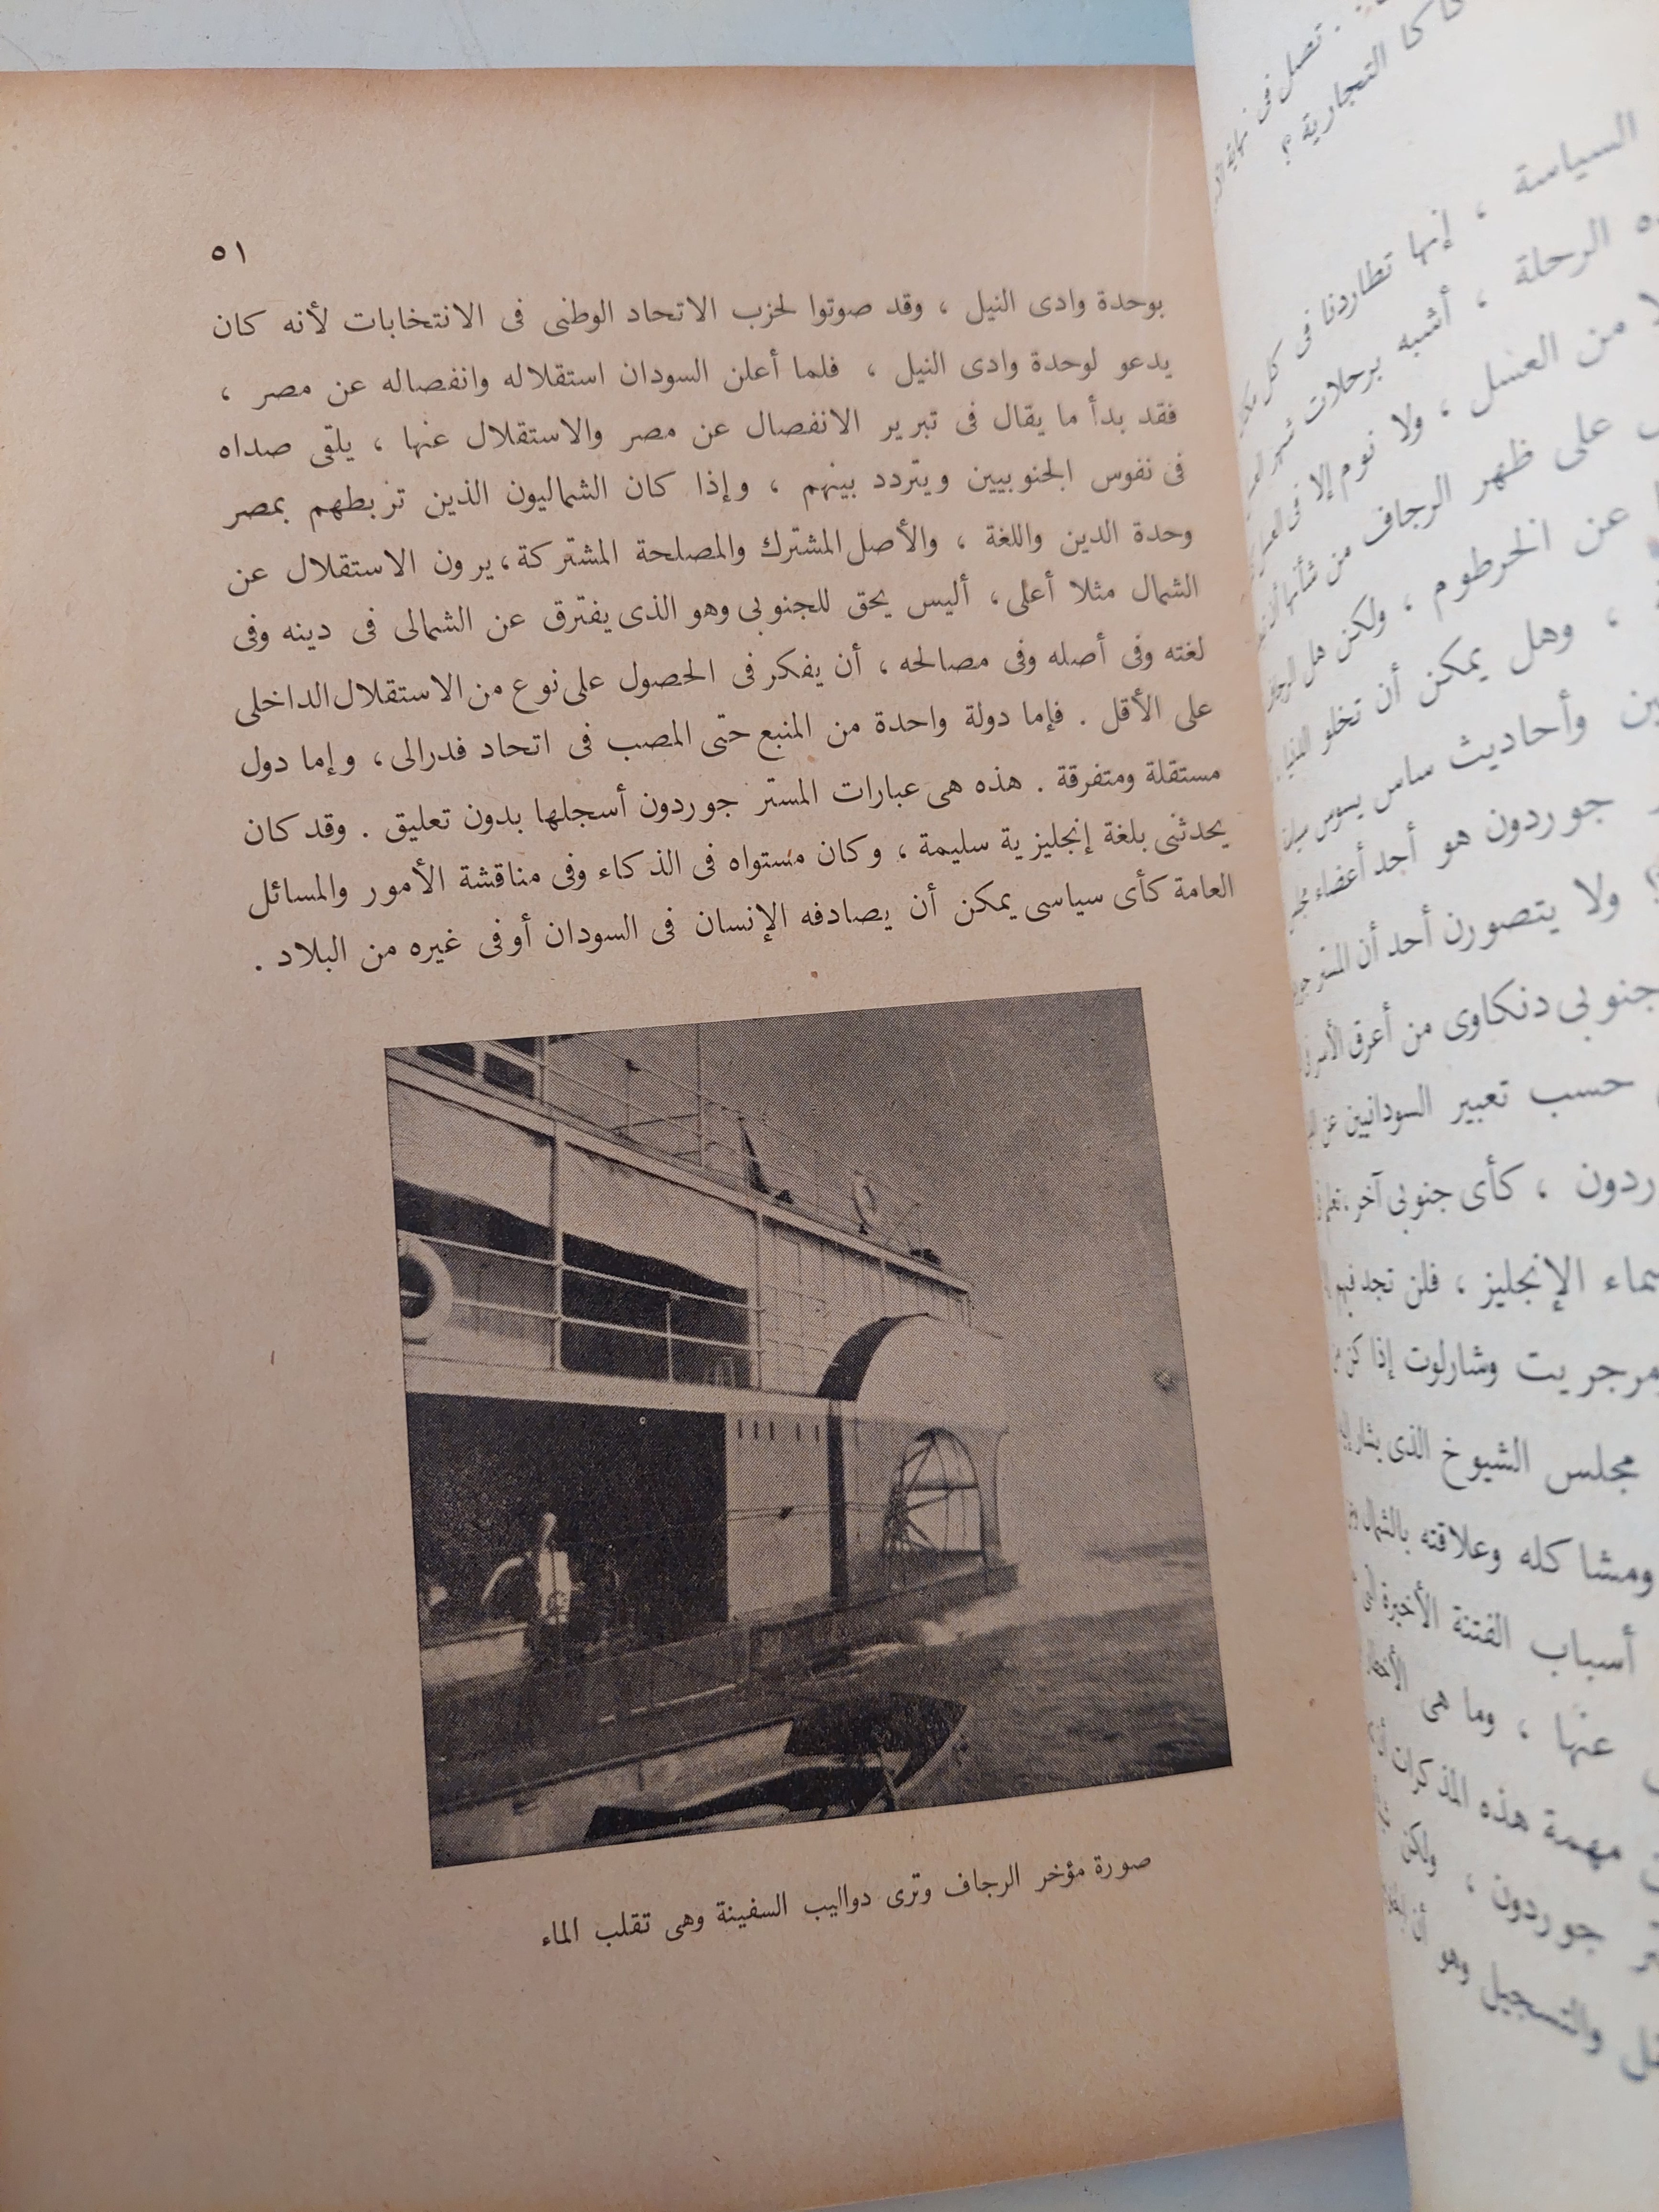 ٥١
بوحدة وادى النيل ، وقد صوتوا لحزب الاتحاد الوطنى فى الانتخابات لأنه كان
يدعو لوحدة وادى النيل ، فلما أعلن السودان استقلاله وانفصاله عن مصر ،
فقد بدأ ما يقال فى تبرير الانفصال عن مصر والاستقلال عنها ، يلقى صداه
فى نفوس الجنوبيين ويتردد بينهم ، وإذا كان الشماليون الذين تربطهم بمصر
وحدة الدين واللغة ، والأصل المشترك والمصلحة المشتركة ، يرون الاستقلال عن
الشمال مثلا أعلى ، أليس يحق للجنوبى وهو الذى يفترق عن الشمالى فى دينه وفى
لغته وفى أصله وفى مصالحه ، أن يفكر فى الحصول على نوع من الاستقلال الداخلى
على الأقل . فإما دولة واحدة من المنبع حتى المصب فى اتحاد فدرالى ، وإما دول
مستقلة ومتفرقة . هذه هى عبارات المستر جوردون أسجلها بدون تعليق . وقد كان
يحدثنى بلغة إنجليزية سليمة ، وكان مستواه فى الذكاء وفى مناقشة الأمور والمسائل
العامة كأى سياسى يمكن أن يصادفه الإنسان فى السودان أو فى غيره من البلاد .
صورة مؤخر الرجاف وترى دواليب السفينة وهى تقلب الماء
كا التجارية ؟
السياسة ، إنها تطاردنا فى كل
الرحلة ، أشبه برحلات شهر
من العسل ، ولا نوم إلا فى
على ظهر الرجاف من شأنها
عن الخرطوم ، ولكن هل
، وهل يمكن أن تخلو
وأحاديث ساس يسوس
جوردون هو أحد أعضاء
؟ ولا يتصورن أحد أن المستر
جنوبى دنكاوى من أعرق
حسب تعبير السودانيين عن
ردون ، كأى جنوبى آخر
الإنجليز ، فلن تجد فيهم
مرجريت وشارلوت إذا كن
مجلس الشيوخ الذى يشار
ومشاكله وعلاقته بالشمال
أسباب الفتنة الأخيرة
عنها ، وما هى
مهمة هذه المذكرات
جوردون ، ولكن
والتسجيل وهو